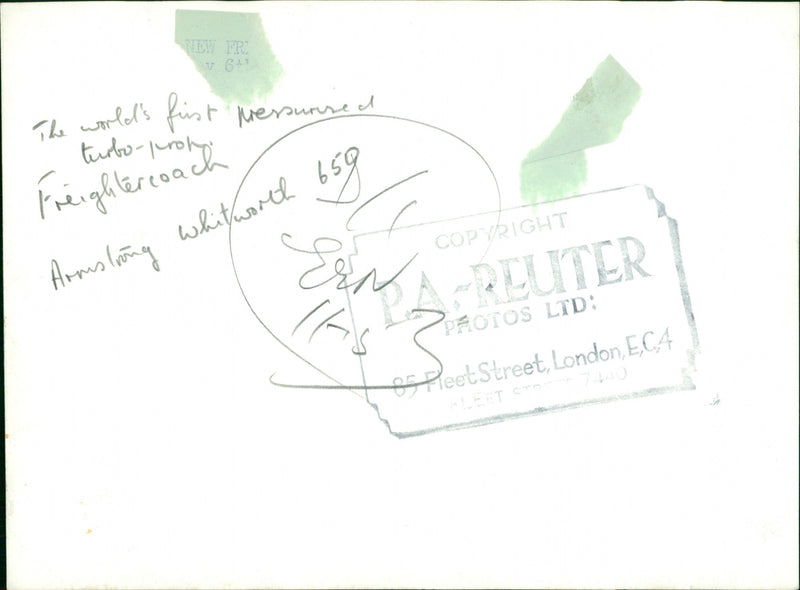 NEW FR
6th
The world's first pressurised
turbo-prop.
Freightercoach
Armstrong Whitworth 650
COPYRIGHT
P.A.-REUTER
PHOTOS LTD:
85 Fleet Street, London, E.C.4
FLEET STREET 7440